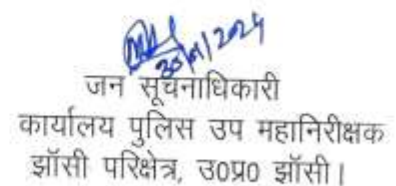 30/01/2024
जन सूचनाधिकारी
कार्यालय पुलिस उप महानिरीक्षक
झॉसी परिक्षेत्र, उ०प्र० झॉसी।